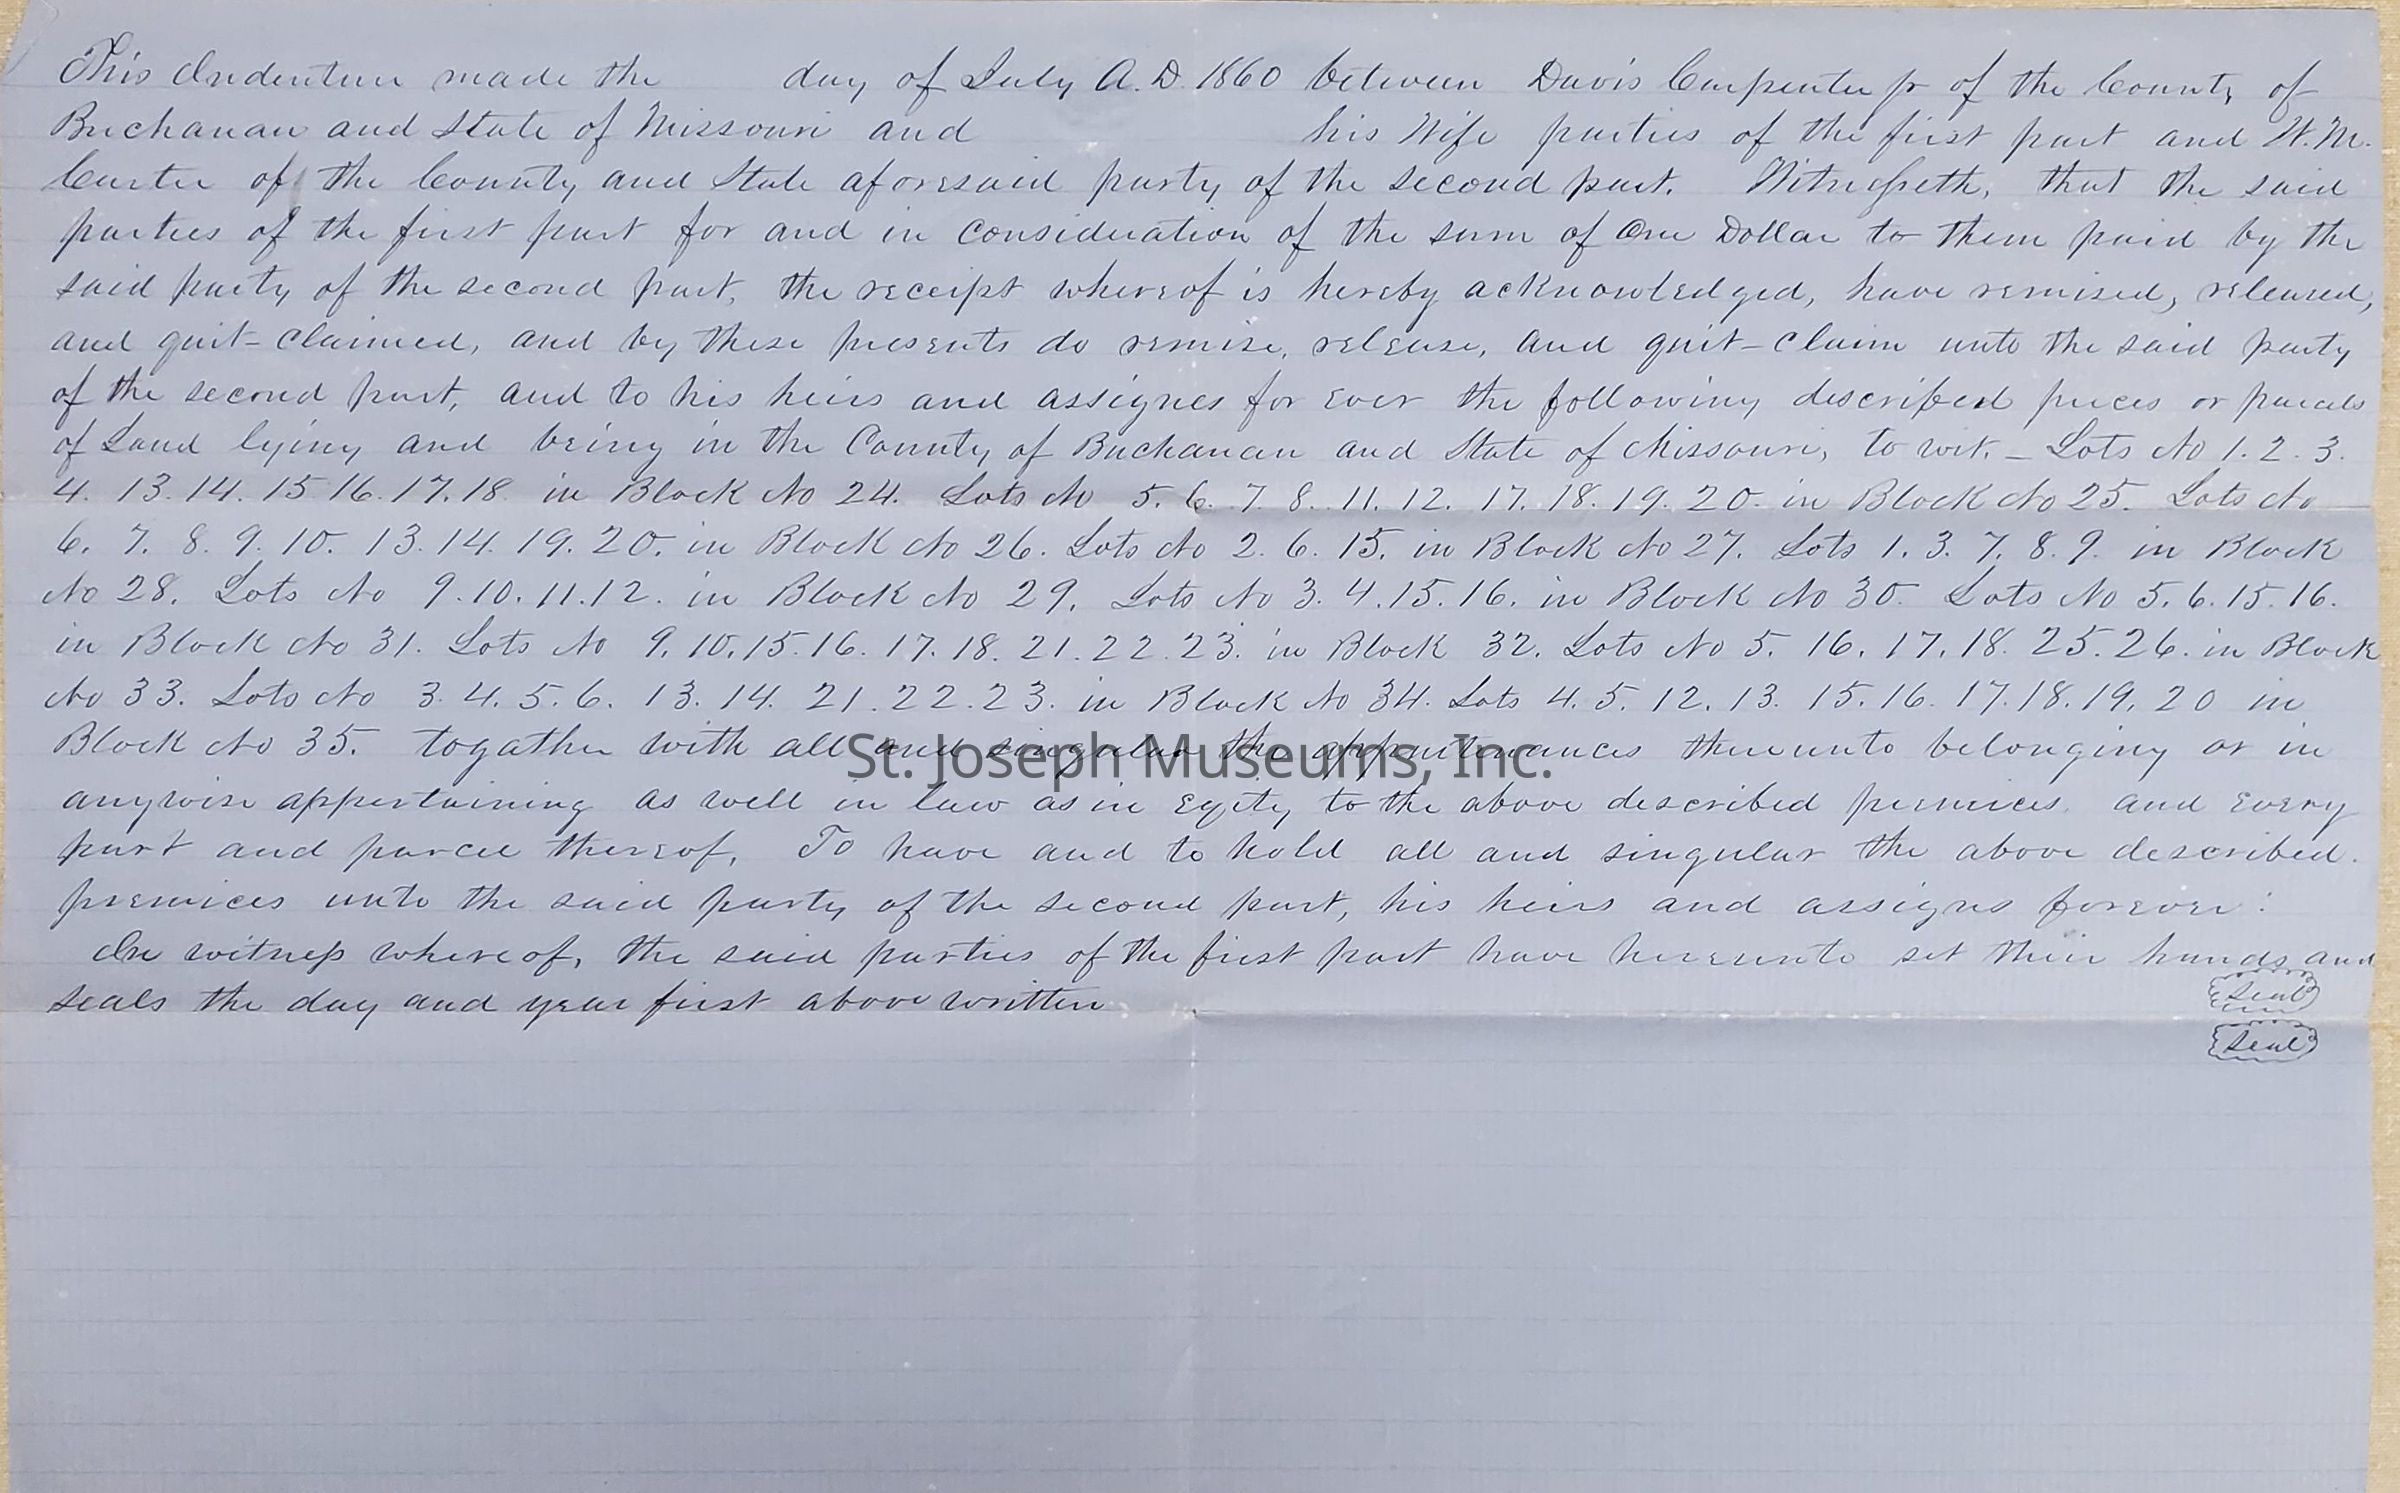 This Indenture made the day of July A.D. 1860 between Davis Carpenter jr of the County of
Buchanan and State of Missouri and his Wife parties of the first part and W. M.
Carter of the County and State aforesaid party of the second part. Witnesseth, that the said
parties of the first part for and in consideration of the sum of One Dollar to them paid by the
said party of the second part, the receipt whereof is hereby acknowledged, have remised, released,
and quit-claimed, and by these presents do remise, release, and quit-claim unto the said party
of the second part, and to his heirs and assignes for ever the following described peices or parcals
of Land lying and being in the County of Buchanan and State of Missouri, to wit. – Lots No 1. 2. 3.
4. 13. 14. 15 16. 17. 18. in Block No 24. Lots No 5. 6. 7. 8. 11. 12. 17. 18. 19. 20. in Block No 25. Lots No
6. 7. 8. 9. 10. 13. 14. 19. 20. in Block No 26. Lots No 2. 6. 15. in Block No 27. Lots 1. 3. 7. 8. 9. in Block
No 28. Lots No 9. 10. 11. 12. in Block No 29. Lots No 3. 4. 15. 16. in Block No 30. Lots No 5. 6. 15. 16.
in Block No 31. Lots No 9. 10. 15. 16. 17. 18. 21. 22. 23. in Block 32. Lots No 5. 16. 17. 18. 25. 26. in Block
No 33. Lots No 3. 4. 5. 6. 13. 14. 21. 22. 23. in Block No 34. Lots 4. 5. 12. 13. 15. 16. 17. 18. 19. 20 in
Block No 35. togather with all and singular the appurtenances thereunto belonging or in
St. Joseph Museums, Inc.
anywise appertaining as well in law as in Eqity to the above described premices. and every
part and parcel thereof, To have and to hold all and singular the above described.
premices unto the said party of the second part, his heirs and assigns forever:
In witness whereof, the said parties of the first part have hereunto set their hands and
seals the day and year first above written
Seal
Seal